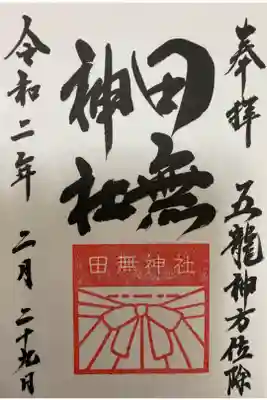 奉拝
五龍神方位除
田無
神社
田無神社
令和二年 二月 二十九日